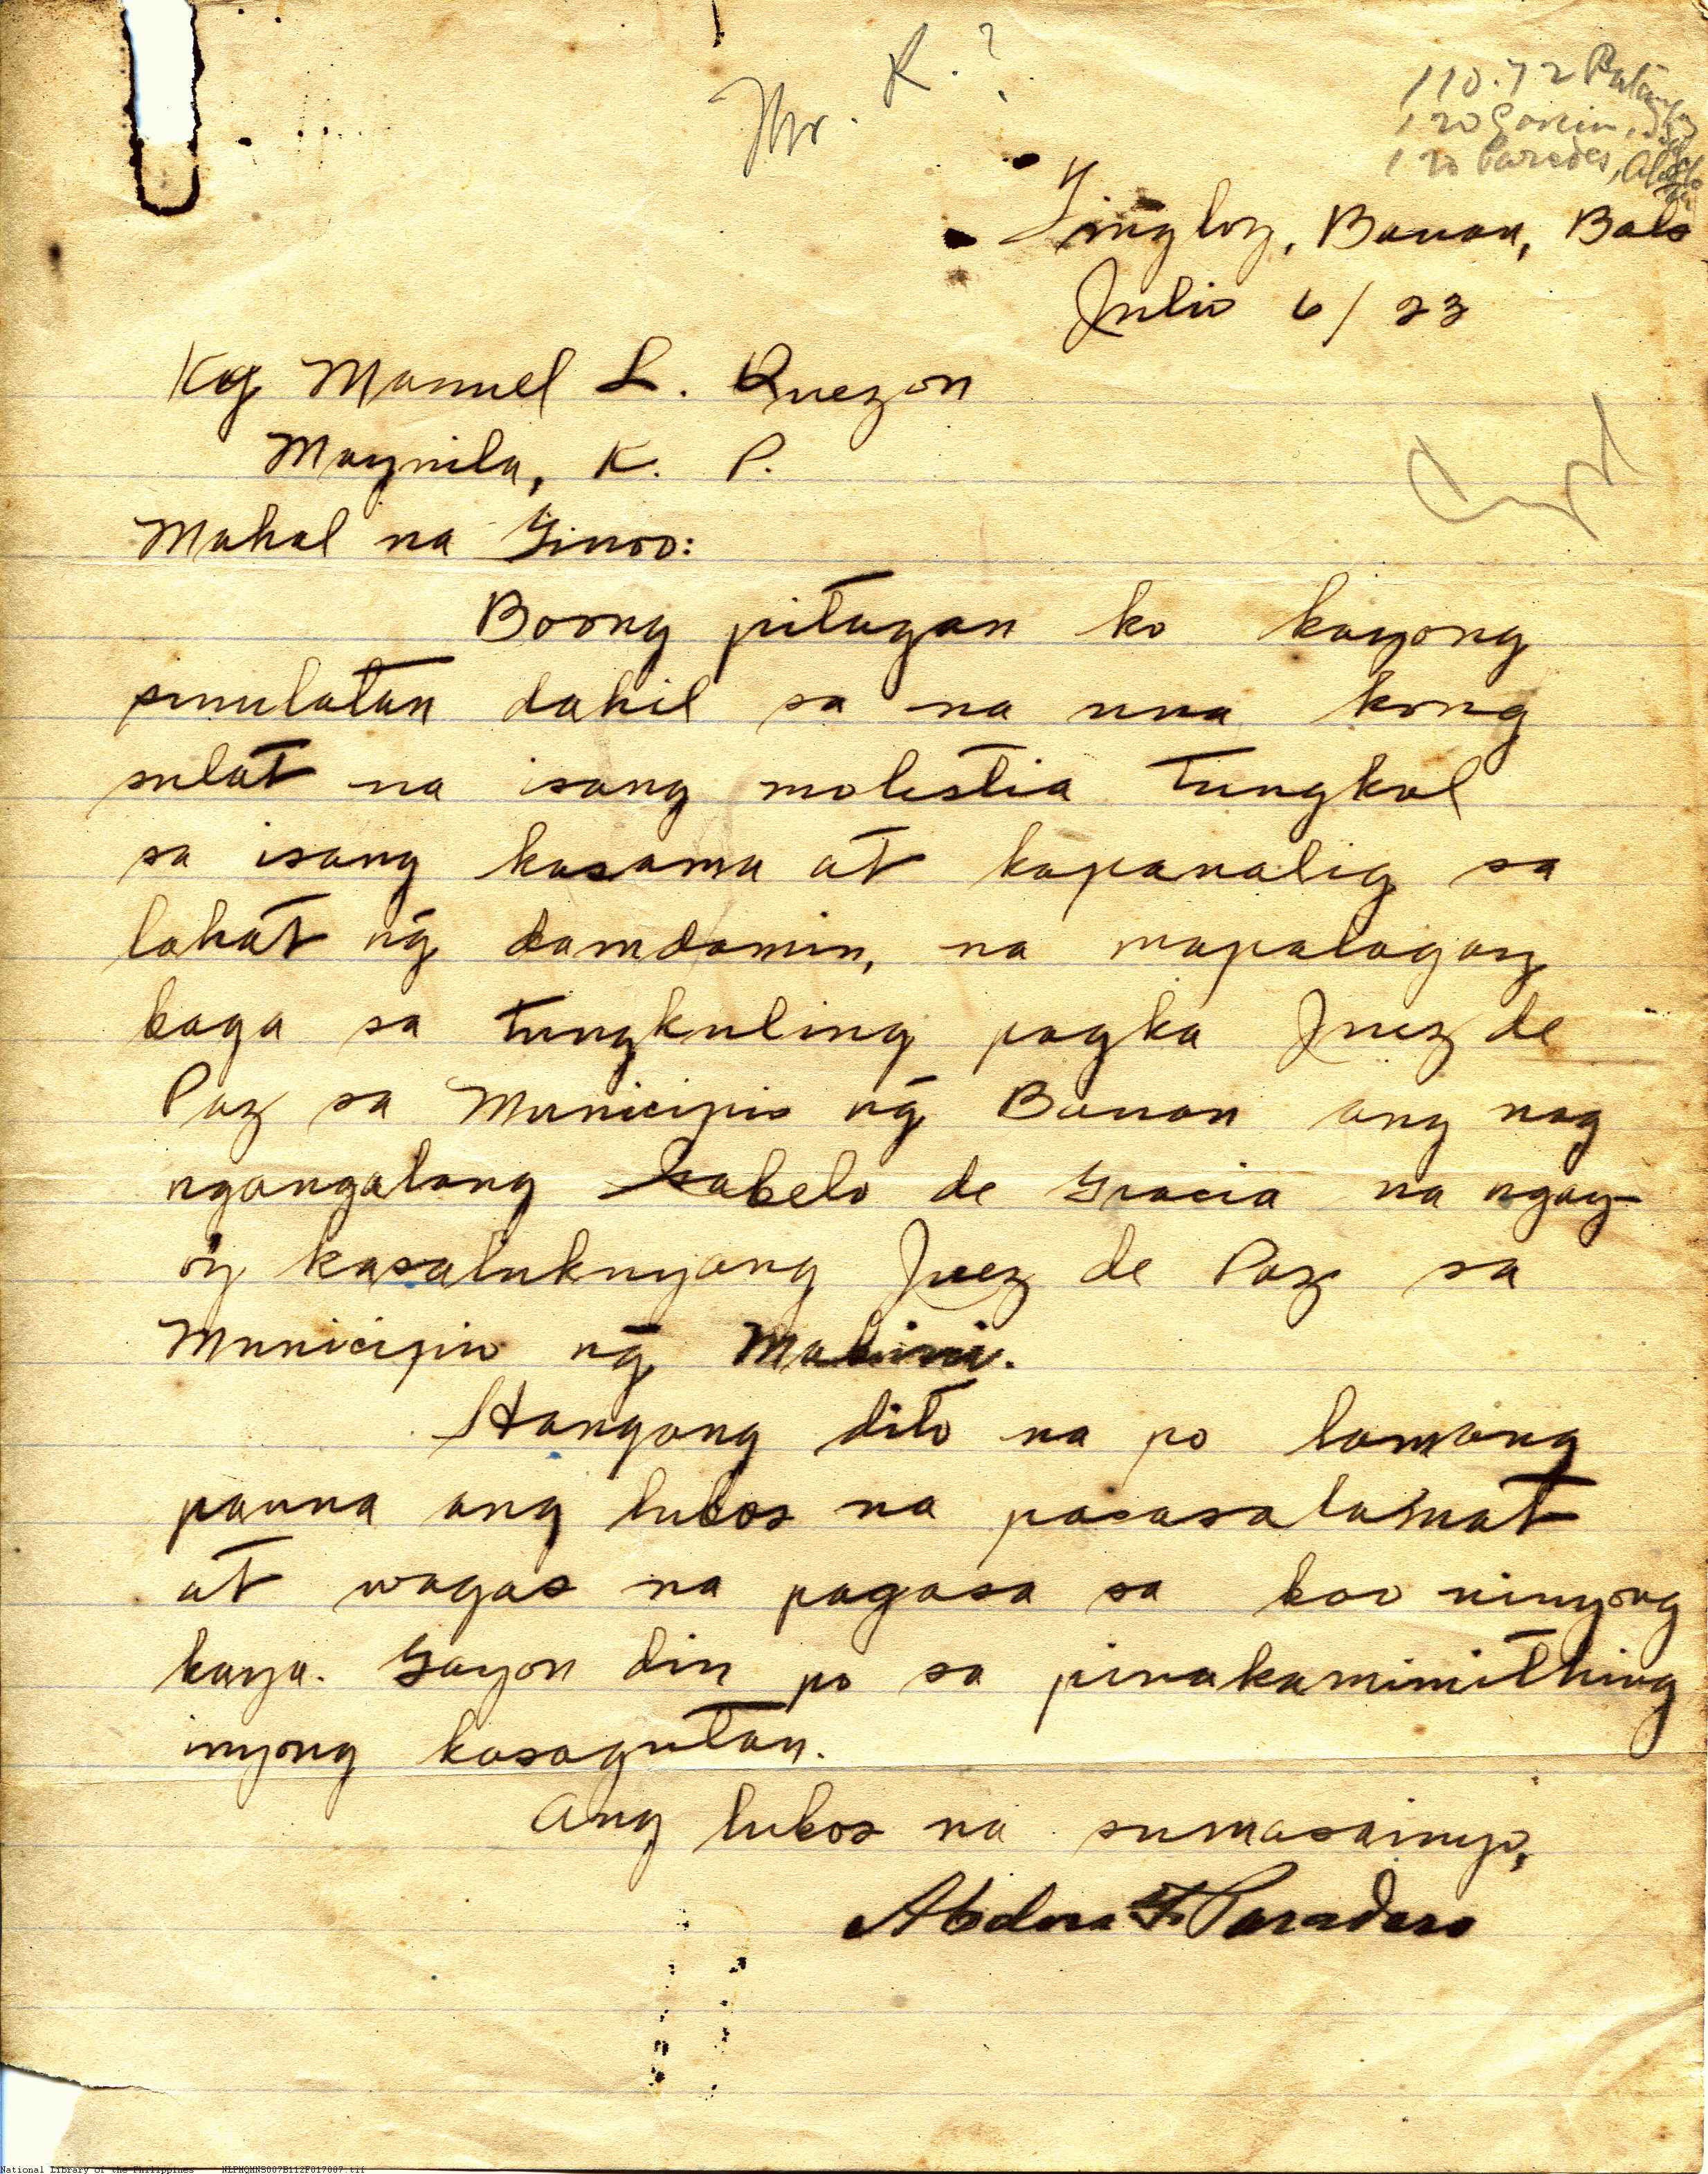 Mr. R.?
110.72 Batangas
120 Gov.
120 Paredes,
Tingloy, Bauan, Bats
Julio 6/33
Kgg Manuel L. Quezon
Maynila, K. P.
Mahal na Ginoo:
Boong pitagan ko kayong
sinulatan dahil sa na una kong
sulat na isang molestia tungkol
sa isang kasama at kapanalig sa
lahat ng damdamin, na mapalagay
baga sa tungkuling pagka Juez de
Paz sa Municipio ng Bauan ang nag
ngangalang Isabelo de Gracia na ngay-
oy kasalukuyang Juez de Paz sa
Municipio ng Mabini.
Hangang dito na po lamang
pauna ang lubos na pasasalamat
at wagas na pagasa sa boo ninyong
kaya. Gayon din po sa pinakamimithing
inyong kasagutan.
Ang lubos na sumasainyo,
National Library of the Philippines NLPMQMNS007B112F017007.tif